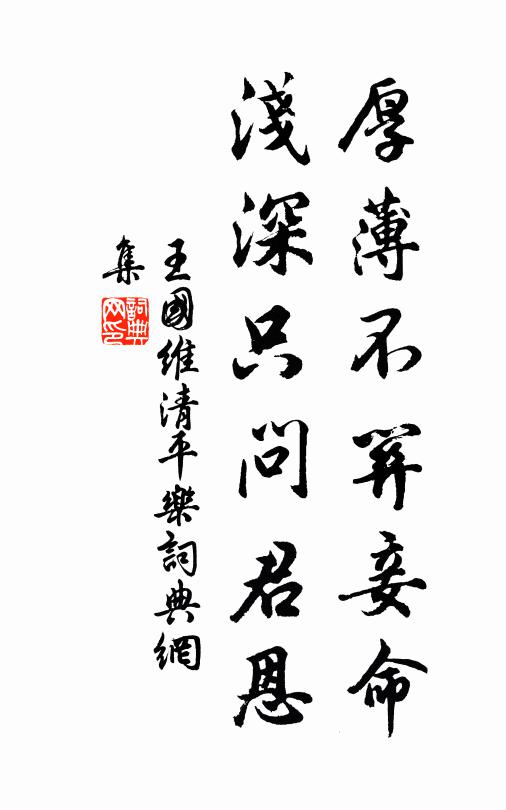 厚薄不關妾命
淺深只問君恩
王國維清平樂詞典網
集
詞典网印